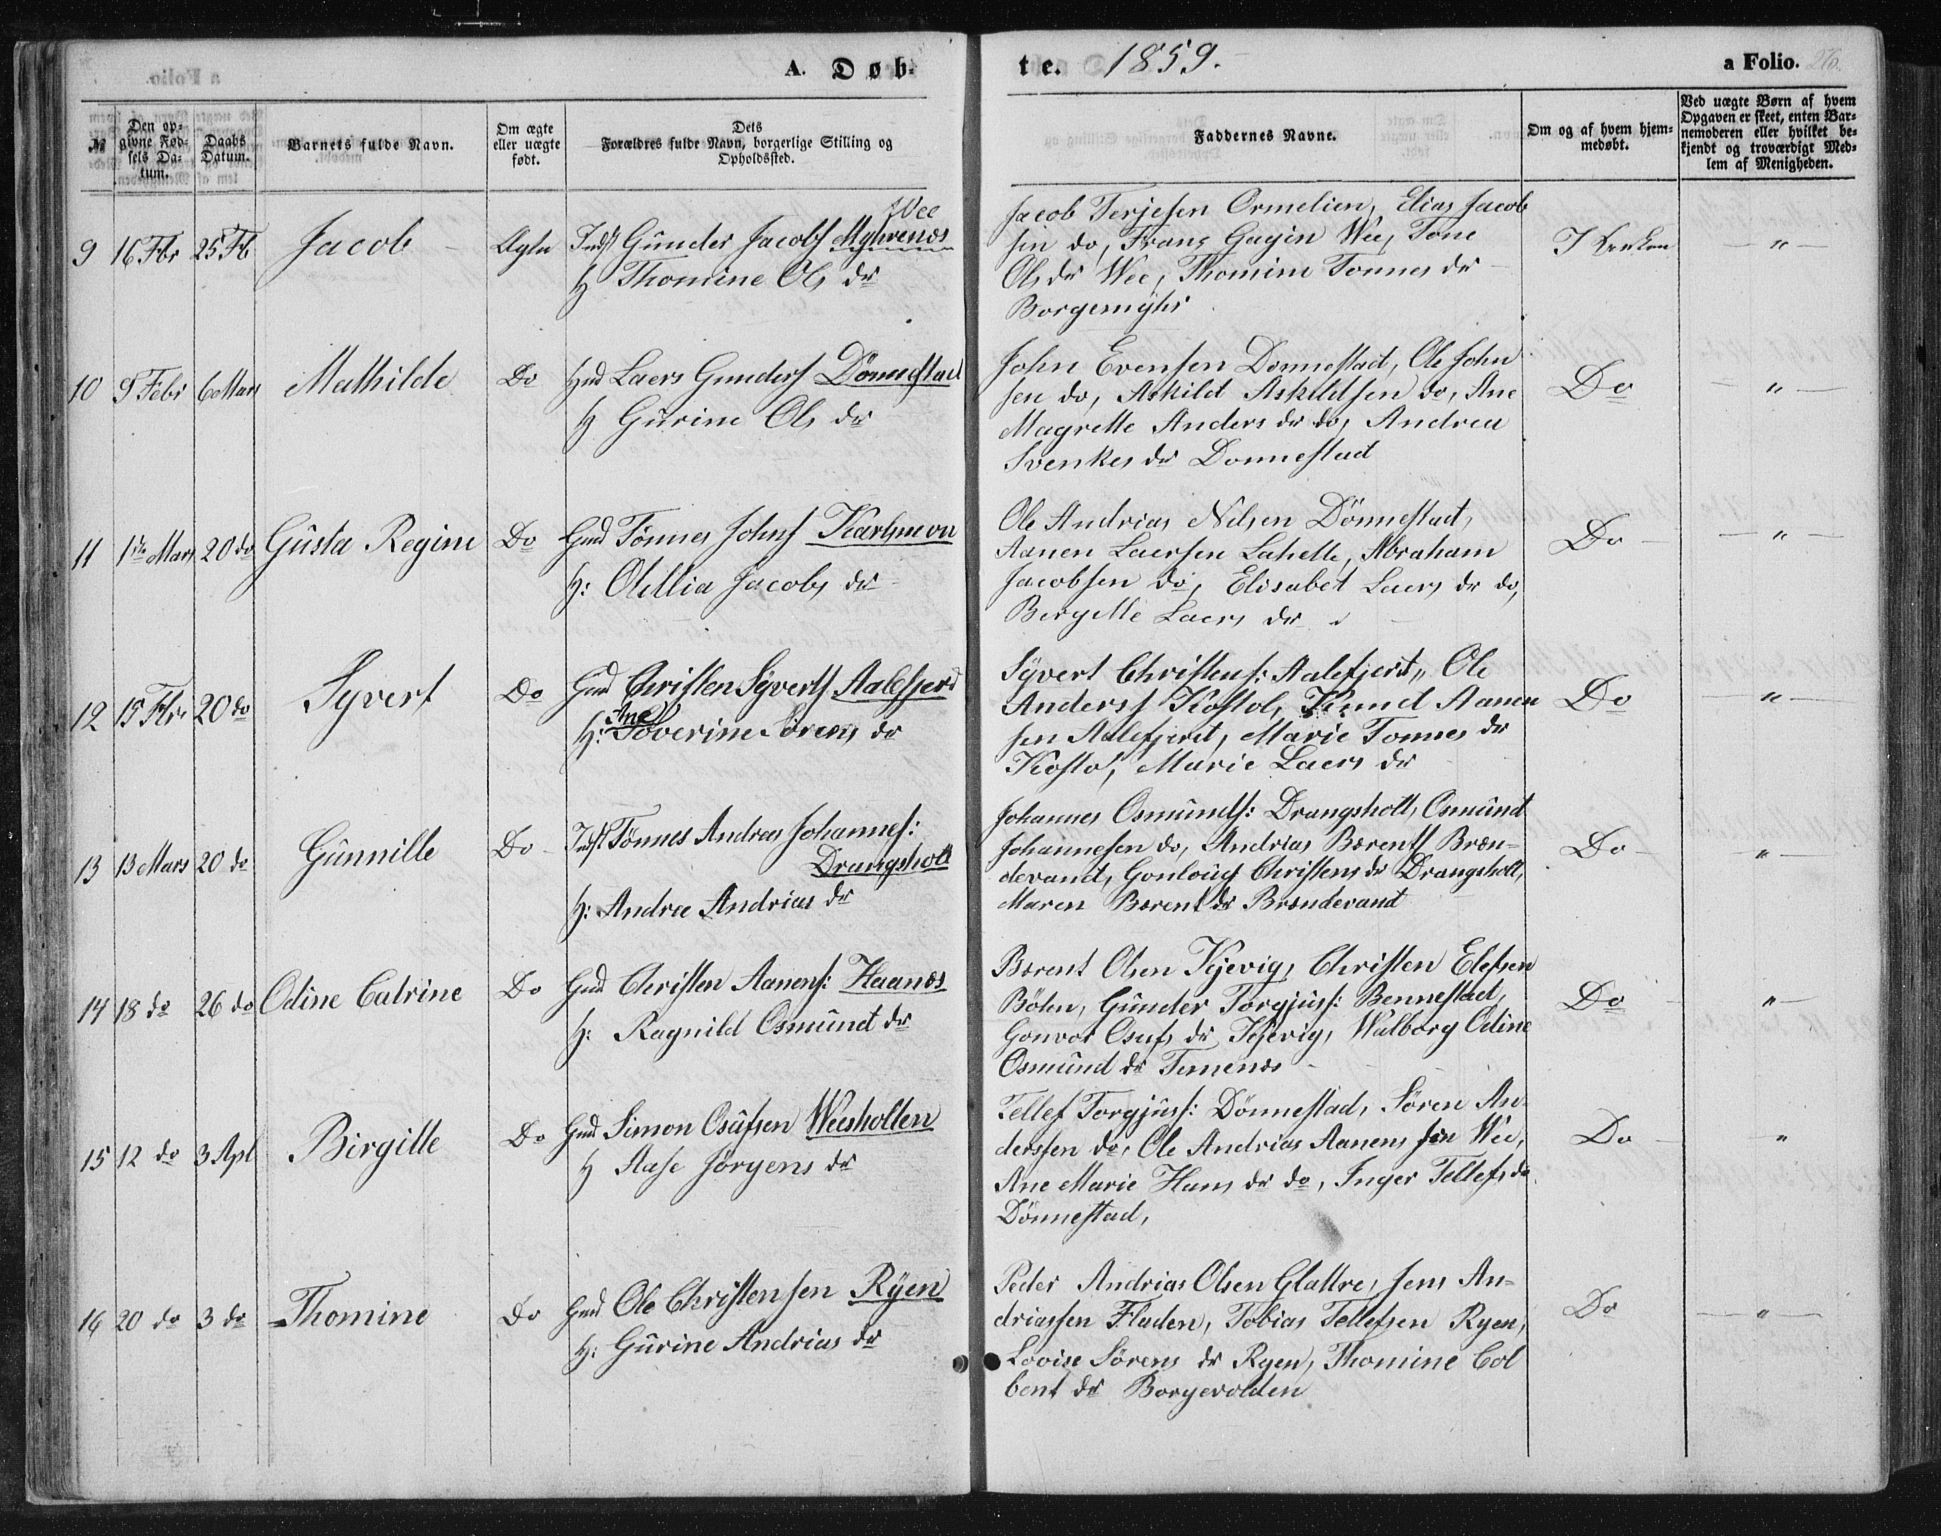 A. Døb-
te. 1859.
a Folio. 26.
№
Den op-
givne Fød-
sels Da-
tum.
Daabs
Datum.
Barnets fulde Navn.
Om ægte
eller uægte
født.
Dets
Forældres fulde Navn, borgerlige Stilling og
Opholdssted.
Faddernes Navne.
Om og af hvem hjem-
medøbt.
Ved uægte Børn af hvem
Opgaven er skeet, enten Bar-
nemoderen eller hvilket be-
kjendt og troværdigt Med-
lem af Menigheden.
9 16 Fbr 25 Fb Jacob Ægte Indst Günder Jacobs Myhrenes
Wee
H Thomine Ols dr
Jacob Terjesen Ormelien, Elias Jacob
sen do, Frans Gagin Wee, Tone
Ols dr Wee, Thomine Tonnes dr
Borgemyhr
I Kirken — " —
10 9 Febr 6 Mars Mathilde Do Gmd Laers Gunders Dönnestad
H Gürine Ols dr
John Evensen Donnestad, Ole John
sen do, Askild Askildsen do, Ane
Magrette Anders dr do, Andrea
Svenkes dr Donnestad
Do — " —
11 1ste Mars 20 do Güsta Regine Do Gmd Tönnes Johns Karlsmon
H: Olellia Jacobs dr
Ole Andrias Nilsen Dönnestad,
Aanen Laersen Lahelle, Abraham
Jacobsen do, Elisabet Laers dr do,
Birgitte Laers dr
Do — " —
12 15 Fbr 20 do Syvert Do Gmd Christen Syverts Aalefjerd
Ane
H: Soverine Sörens dr
Syvert Christens: Aalefjerd, Ole
Anders Kostol, Knud Aanen
sen Aalefjerd, Marie Tonnes dr
Kostol, Marie Laers dr
Do " —
13 13 Mars 20 do Günnille Do Indst Tönnes Andreas Johannes:
Drangsholt
H: Andrea Andrias dr
Johannes Osmünds: Drangsholt, Osmünd
Johannesen do, Andrias Bærents Bræn-
devand, Gonloug Christens dr Drangsholt,
Maren Bærent dr Brændevand
Do — " —
14 18 do 26 do Odine Catrine Do Gmd Christen Aanens: Haanes
H: Ragnild Osmünd dr
Bærent Olsen Kjevig, Christen Elefsen
Bölen, Günder Torgjüs: Bennestad,
Gonvor Osufs dr Kjevig, Walborg Odine
Osmünd dr Temenes
Do " —
15 12 do 3 Apl Birgitte Do Gmd Simon Osüfsen Weesholten
H Aase Jörgens dr
Tellef Torgjüs: Dönnestad, Sören An-
derssen do, Ole Andrias Aanens sen Wee,
Ane Marie Hans dr do, Inger Tellefs dr
Dönnestad,
Do "
16 20 do 3 do Thomine Do Gmd Ole Christensen Ryen
H: Gürine Andrias dr
Peder Andrias Olsen Glattre, Jens An-
driassen Fladen, Tobias Tellefsen Ryen,
Lovise Sörens dr Ryen, Thomine Col
bent dr Borgevolden
Do — " —